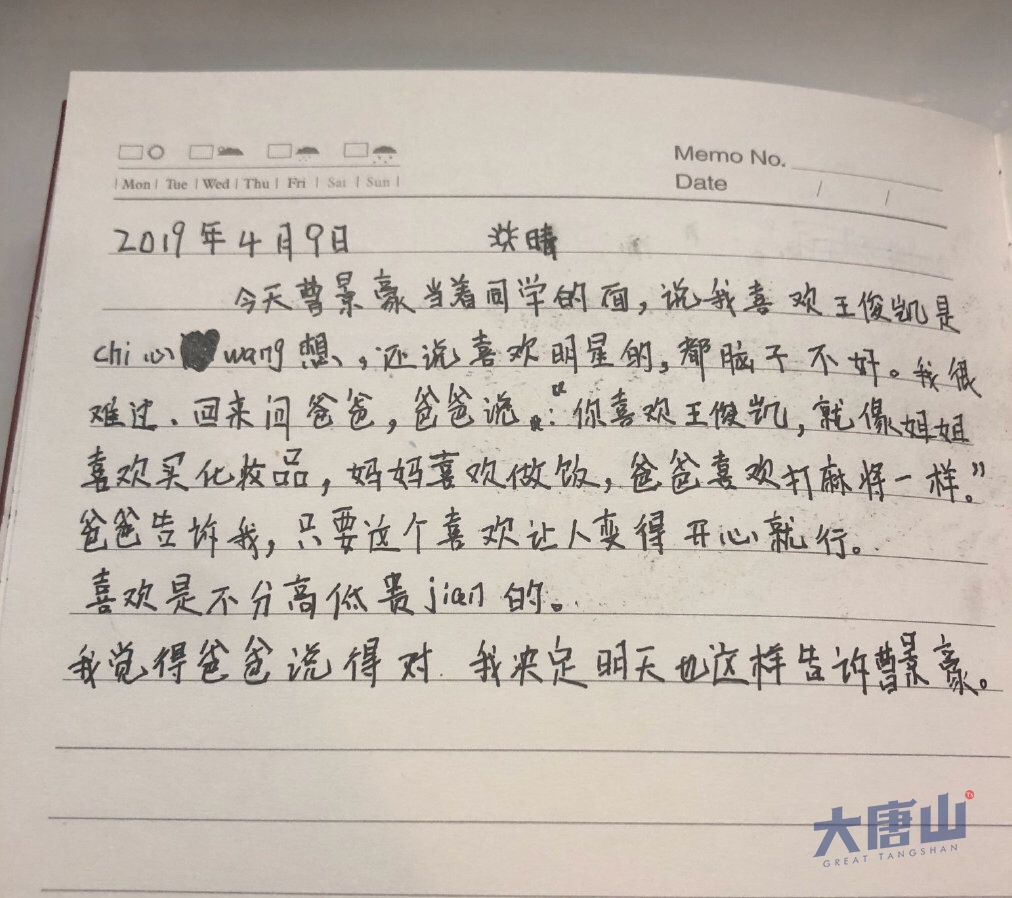 Memo No.
Mon | Tue | Wed | Thu | Fri | Sat | Sun
Date / /
2019年4月9日 晴
今天曹景豪当着同学的面，说我喜欢王俊凯是
chi心wang想，还说喜欢明星的，都脑子不好。我很
难过、回来问爸爸，爸爸说：“你喜欢王俊凯，就像姐姐
喜欢买化妆品，妈妈喜欢做饭，爸爸喜欢打麻将一样。”
爸爸告诉我，只要这个喜欢让人变得开心就行。
喜欢是不分高低贵jian的。
我觉得爸爸说得对．我决定明天也这样告诉曹景豪。
大唐山
Ts
GREAT TANGSHAN